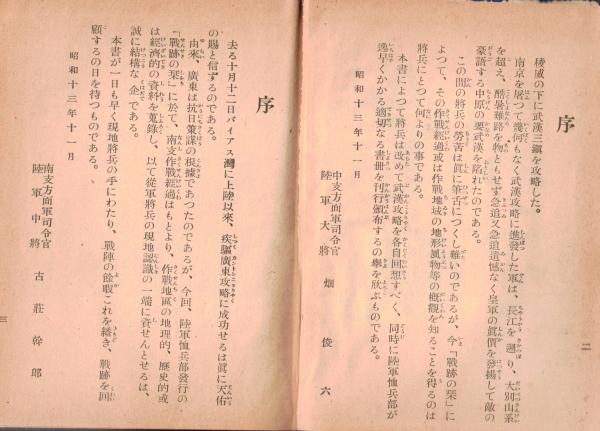 序
稜威の下に武漢三鎭を攻略した。
南京を屠つて幾何もなく武漢攻略に進發した軍は、長江を遡り、大別山系
を超え、酷暑難路を物ともせず急追又急追遺憾なく皇軍の眞價を發揚して敵の
豪語する中原の要武漢を陷れたのである。
この間の將兵の勞苦は眞に筆舌につくし難いのであるが、今「戰跡の栞」に
よつて、その作戰經過或は作戰地域の地形風物等の概觀を知ることを得るのは
將兵にとつて何よりの事である。
本書によつて將兵は改めて武漢攻略を各自回想すべく、同時に陸軍恤兵部が
逸早くかかる適切なる書册を刊行頒布するの擧を欣ぶものである。
昭和十三年十一月
中支方面軍司令官
陸軍大將 畑俊六
二
序
去る十月十二日バイアス灣に上陸以來、疾驅廣東攻略に成功せるは眞に天佑
の賜と信ずるのである。
由來、廣東は抗日策謀の根據であつたのであるが、今回、陸軍恤兵部發行の
「戰跡の栞」に於て、南支作戰經過はもとより、作戰地區の地理的、歷史的或
は經濟的資料を蒐錄し、以て從軍將兵の現地認識の一端に資せんとせるは、
誠に結構な企である。
本書が一日も早く現地將兵の手にわたり、戰陣の餘暇これを繙き、戰跡を回
顧するの日を待つものである。
昭和十三年十一月
南支方面軍司令官
陸軍中將 古莊幹郎
三